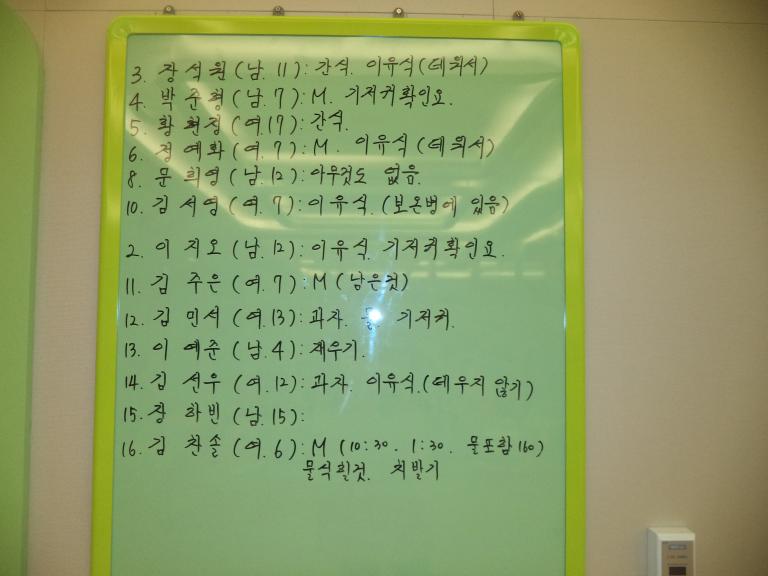 3. 장석원 (남. 11): 간식. 이유식(데워서)
4. 박준형 (남. 7): M. 기저귀확인요.
5. 황현정 (여. 17): 간식.
6. 정예화 (여. 7): M. 이유식 (데워서)
8. 문희영 (남. 12): 아무것도 없음.
10. 김서영 (여. 7): 이유식. (보온병에 있음)
2. 이지오 (남. 12): 이유식. 기저귀확인요.
11. 김주은 (여. 7): M (남은것)
12. 김민서 (여. 13): 과자. 물. 기저귀.
13. 이예준 (남. 4): 재우기.
14. 김선우 (여. 12): 과자. 이유식. (데우지 않기)
15. 장하빈 (남. 15):
16. 김찬솔 (여. 6): M (10:30. 1:30. 물포함 160)
물식힐것. 치발기